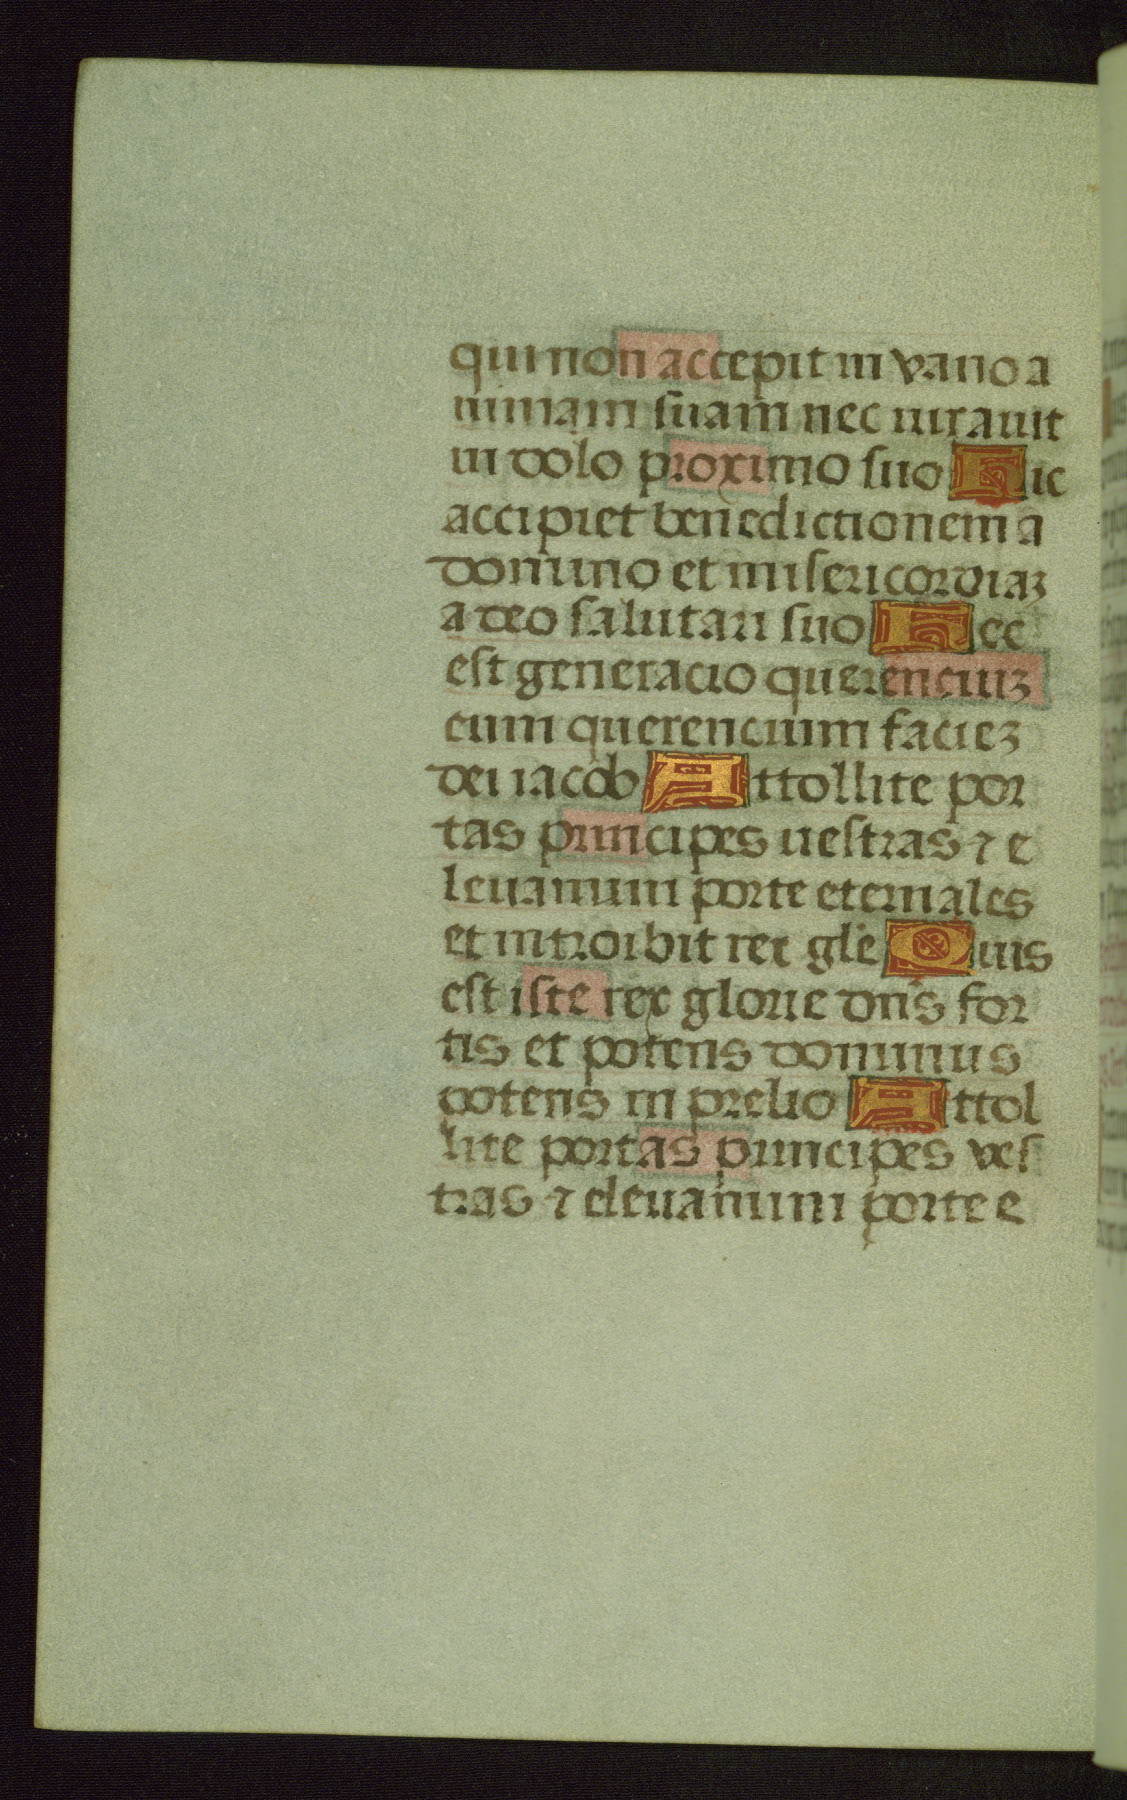 qui non accepit in vano a
nimam suam nec iurauit
in dolo proximo suo Hic
accipiet benedictionem a
domino et misericordiaꝫ
a deo salutari suo Hec
est generacio querenciuꝫ
eum querencium facieꝫ
dei iacob Attollite por
tas principes uestras ⁊ e
leuamini porte eternales
et introibit rex gle Quis
est iste rex glorie dn̄s for
tis et potens dominus
potens in prelio Attol
lite portas principes ves
tras ⁊ eleuamini porte e